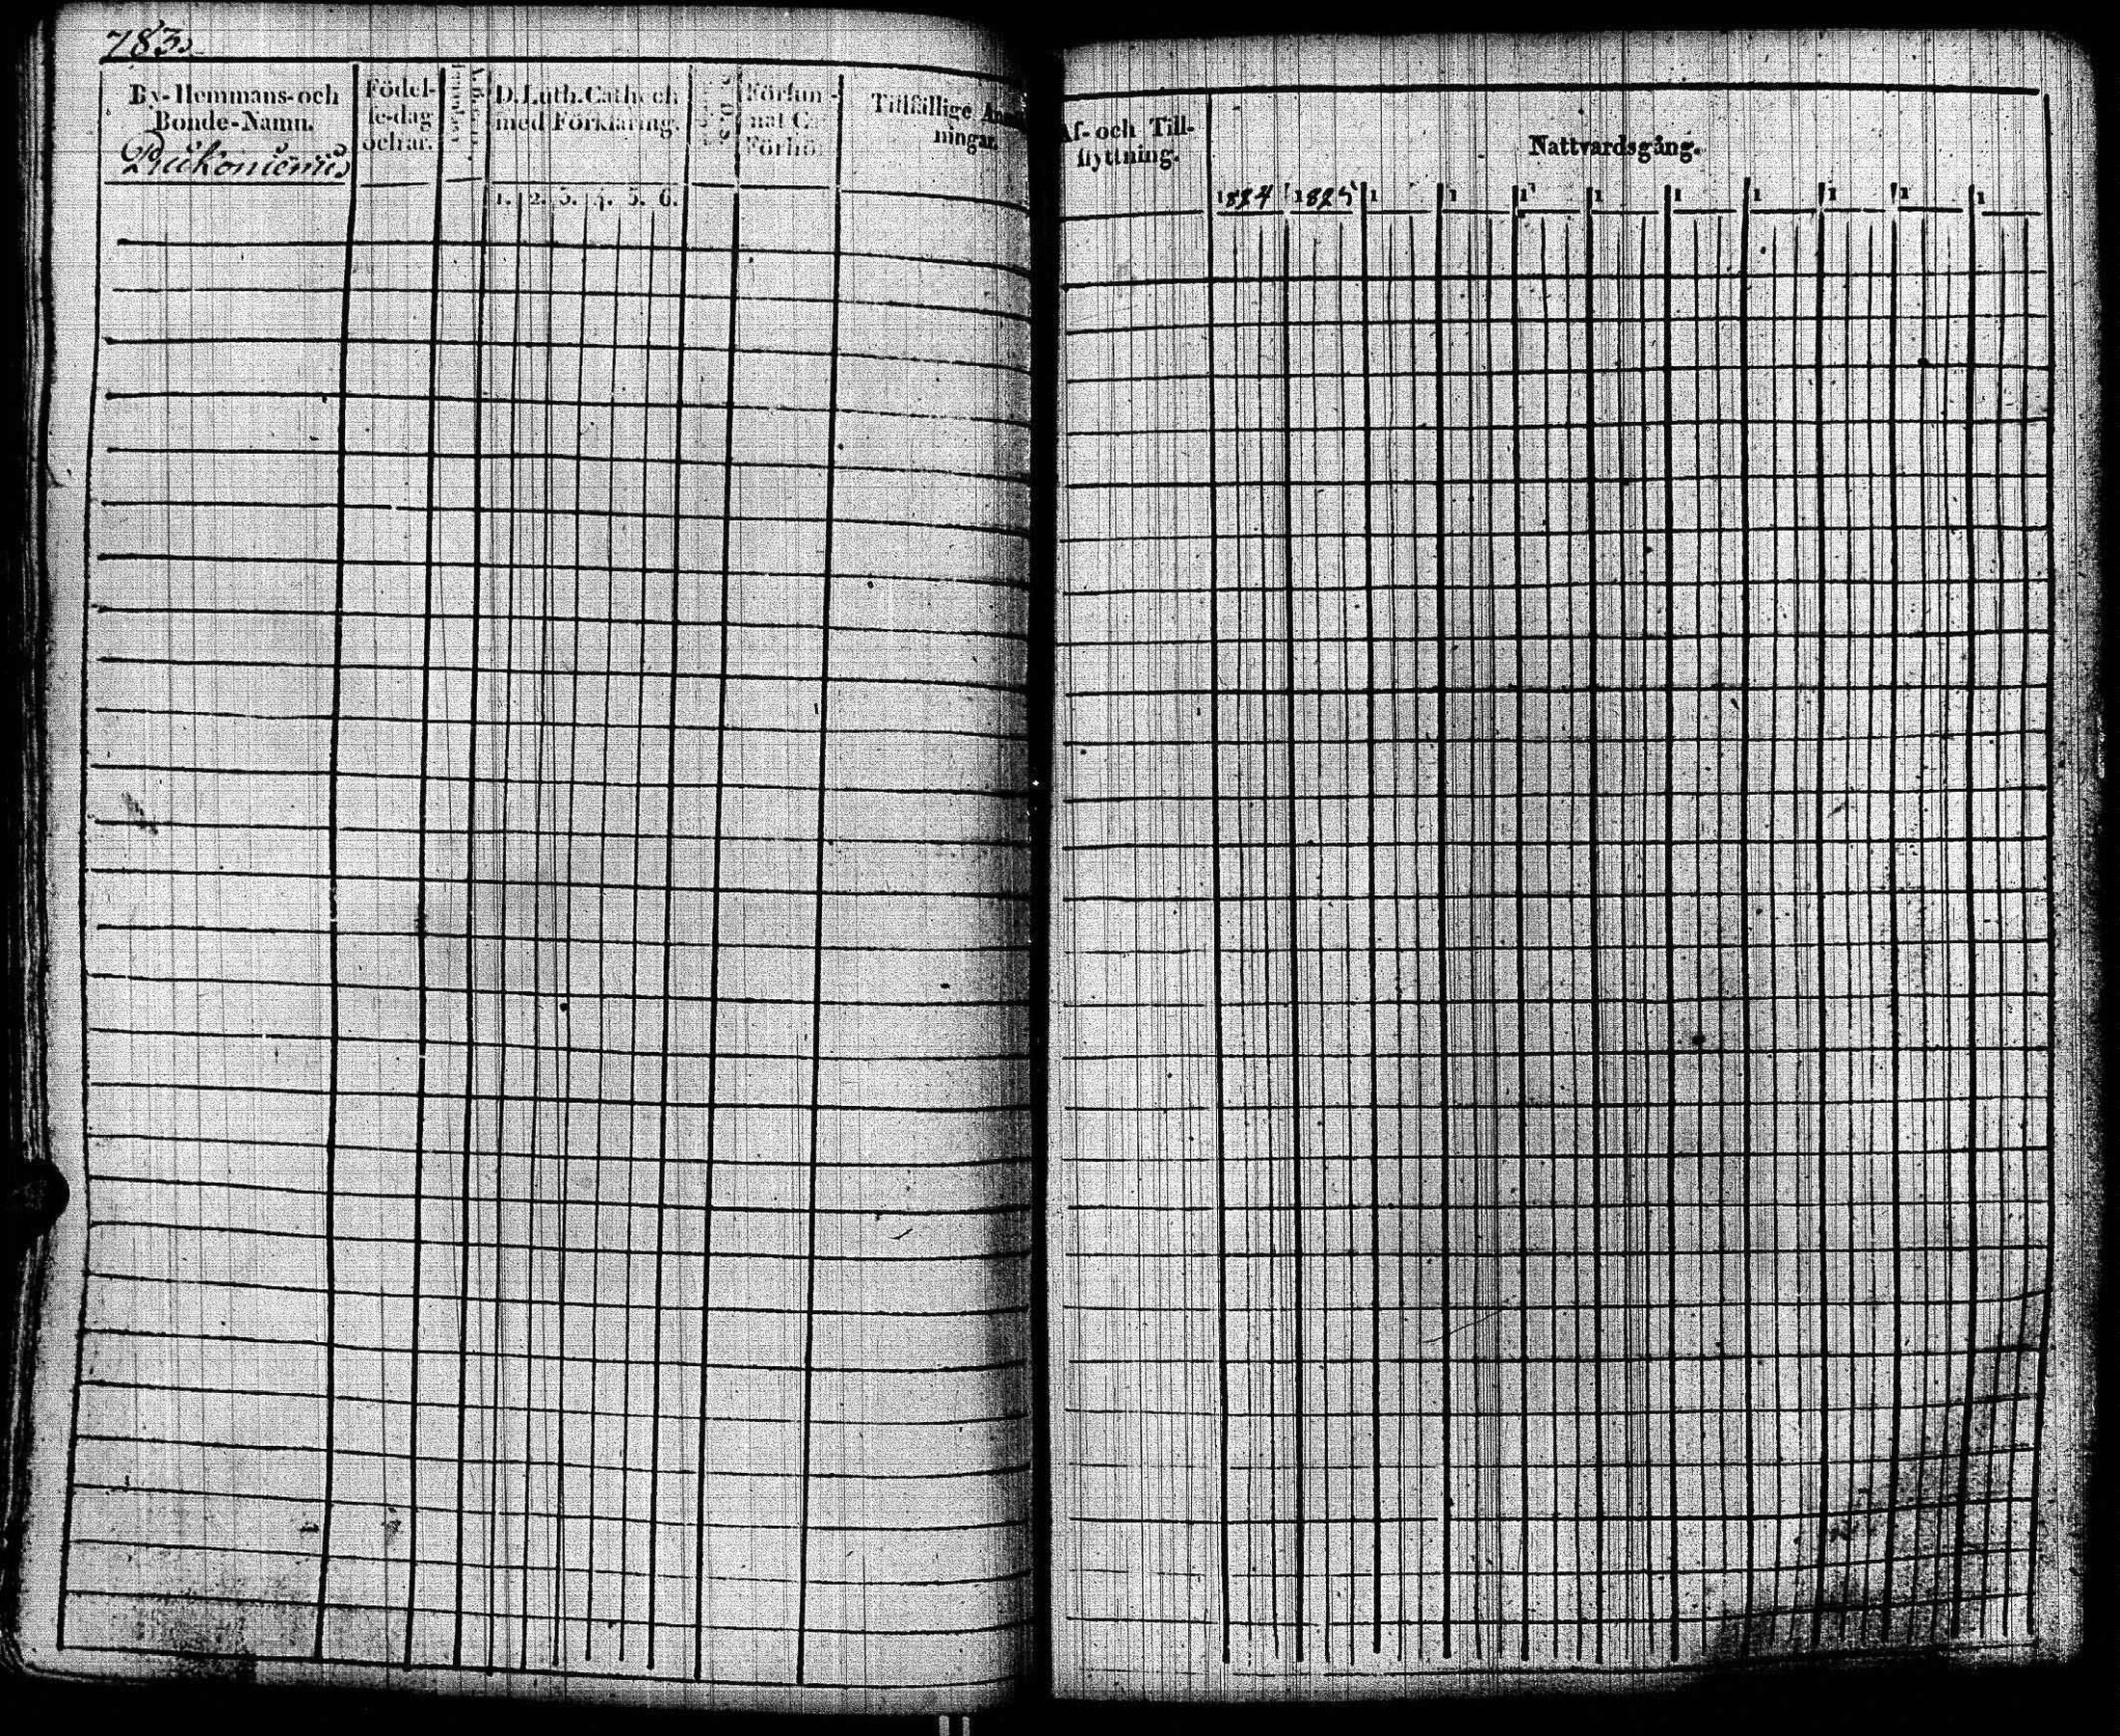 783.
By-Hemmans-och
Bonde-Namn.
Födel-
se-dag
och år.
D. Luth. Cathech
med Förklaring.
1. 2. 3. 4. 5. 6.
Försum-
Tillfällige
ningar.
Af- och Till-
flyttning.
Nattvardsgång.
1824 1825 1 1 1 1 1 1 1 1 1